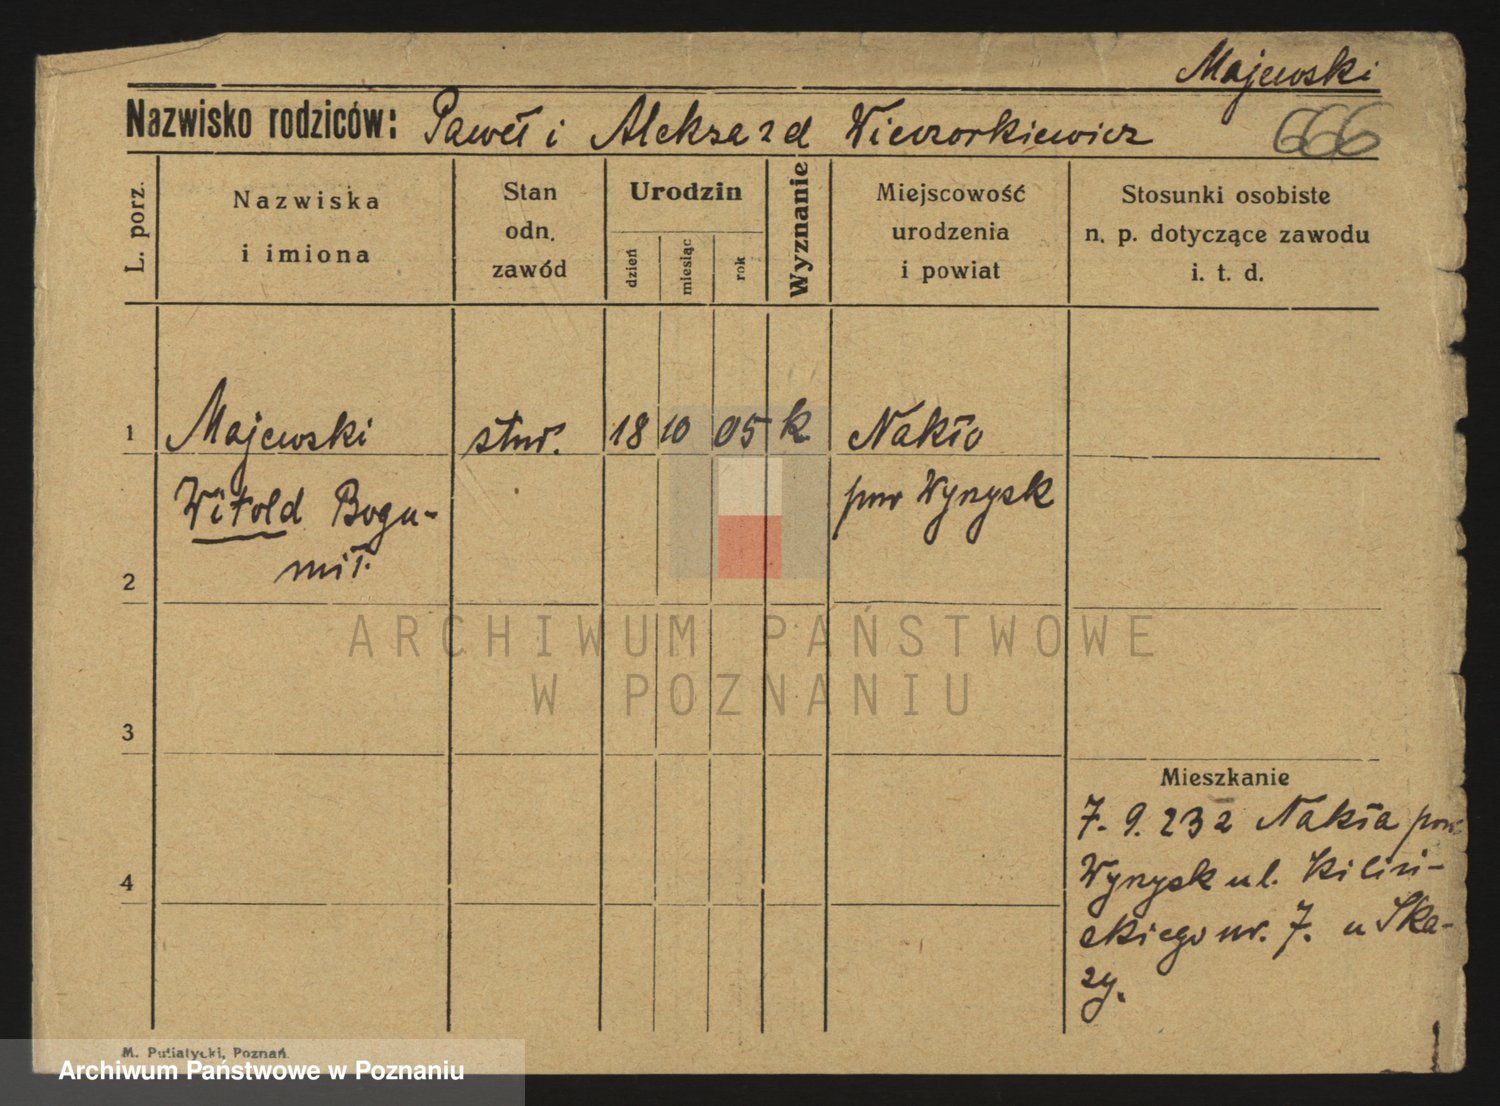 Majewski
Nazwisko rodziców: Paweł i Aleksa z d Wieczorkiewicz 666
L. porz.
Nazwiska
i imiona
Stan
odn.
zawód
Urodzin
dzień
miesiąc
rok
Wyznanie
Miejscowość
urodzenia
i powiat
Stosunki osobiste
n. p. dotyczące zawodu
i. t. d.
1 Majewski stud. 18 10 05 k. Nakło
Witold Bogu- pow Wyrzysk
mił.
2
3
Mieszkanie
7. 9. 232 Nakła pow
4
Wyrzysk ul. Kiliń-
skiego nr. 7. u Ska-
zy.
M. Putiatycki, Poznań.
ARCHIWUM PAŃSTWOWE
W POZNANIU
Archiwum Państwowe w Poznaniu